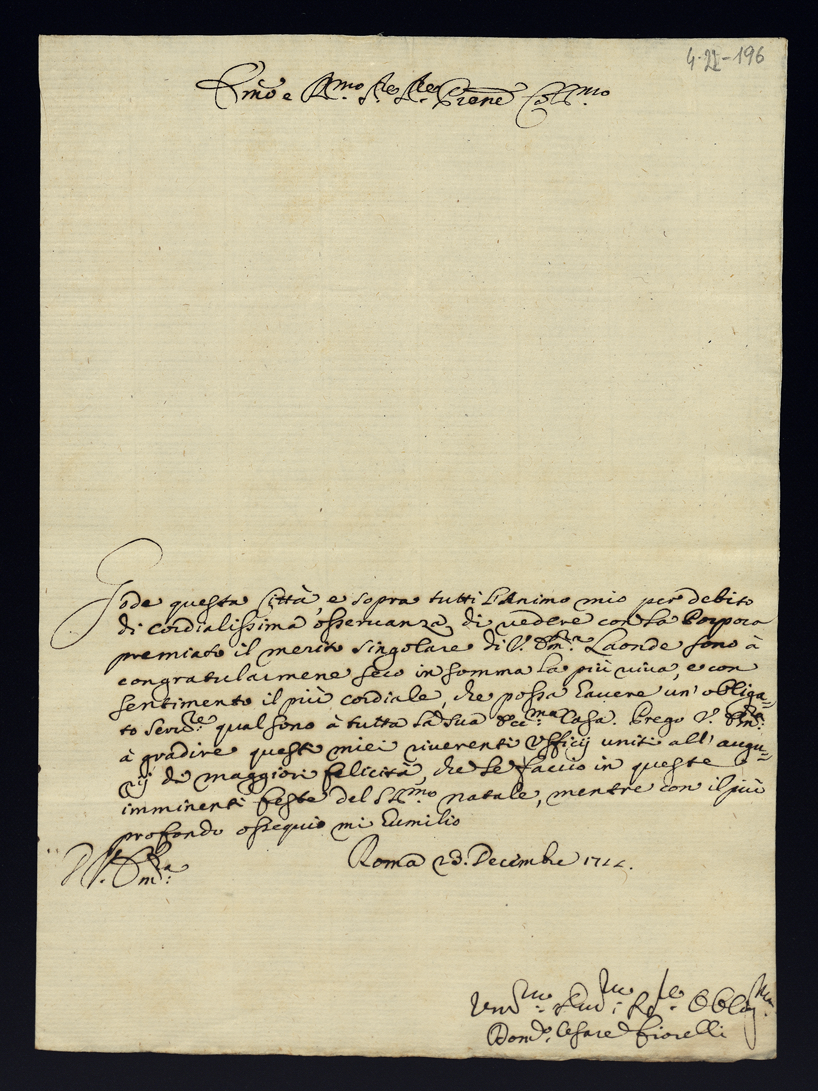 4-22-196
Em̃o e Rmo Sig.r Sig.r Prone Colmo
Gode questa Città e sopra tutti l'Animo mio per debito
di cordialissima osservanza di vedere con la Porpora
premiato il merito singolare di V. Em.a Laonde sono à
congratularmene seco in somma la più viva, e con
sentimento il più cordiale, che possa havere un' obliga=
to Serv.re qual sono à tutta la sua Ecc.ma Casa. Prego V. Em.a
à gradire questi miei riverenti ufficij uniti all' augu=
rij de maggiori felicità, che le faccio in queste
imminenti feste del SSmo natale, mentre con il più
profondo ossequio mi humilio
D V. Em.a
Roma Decembre
Cesare Fiorelli